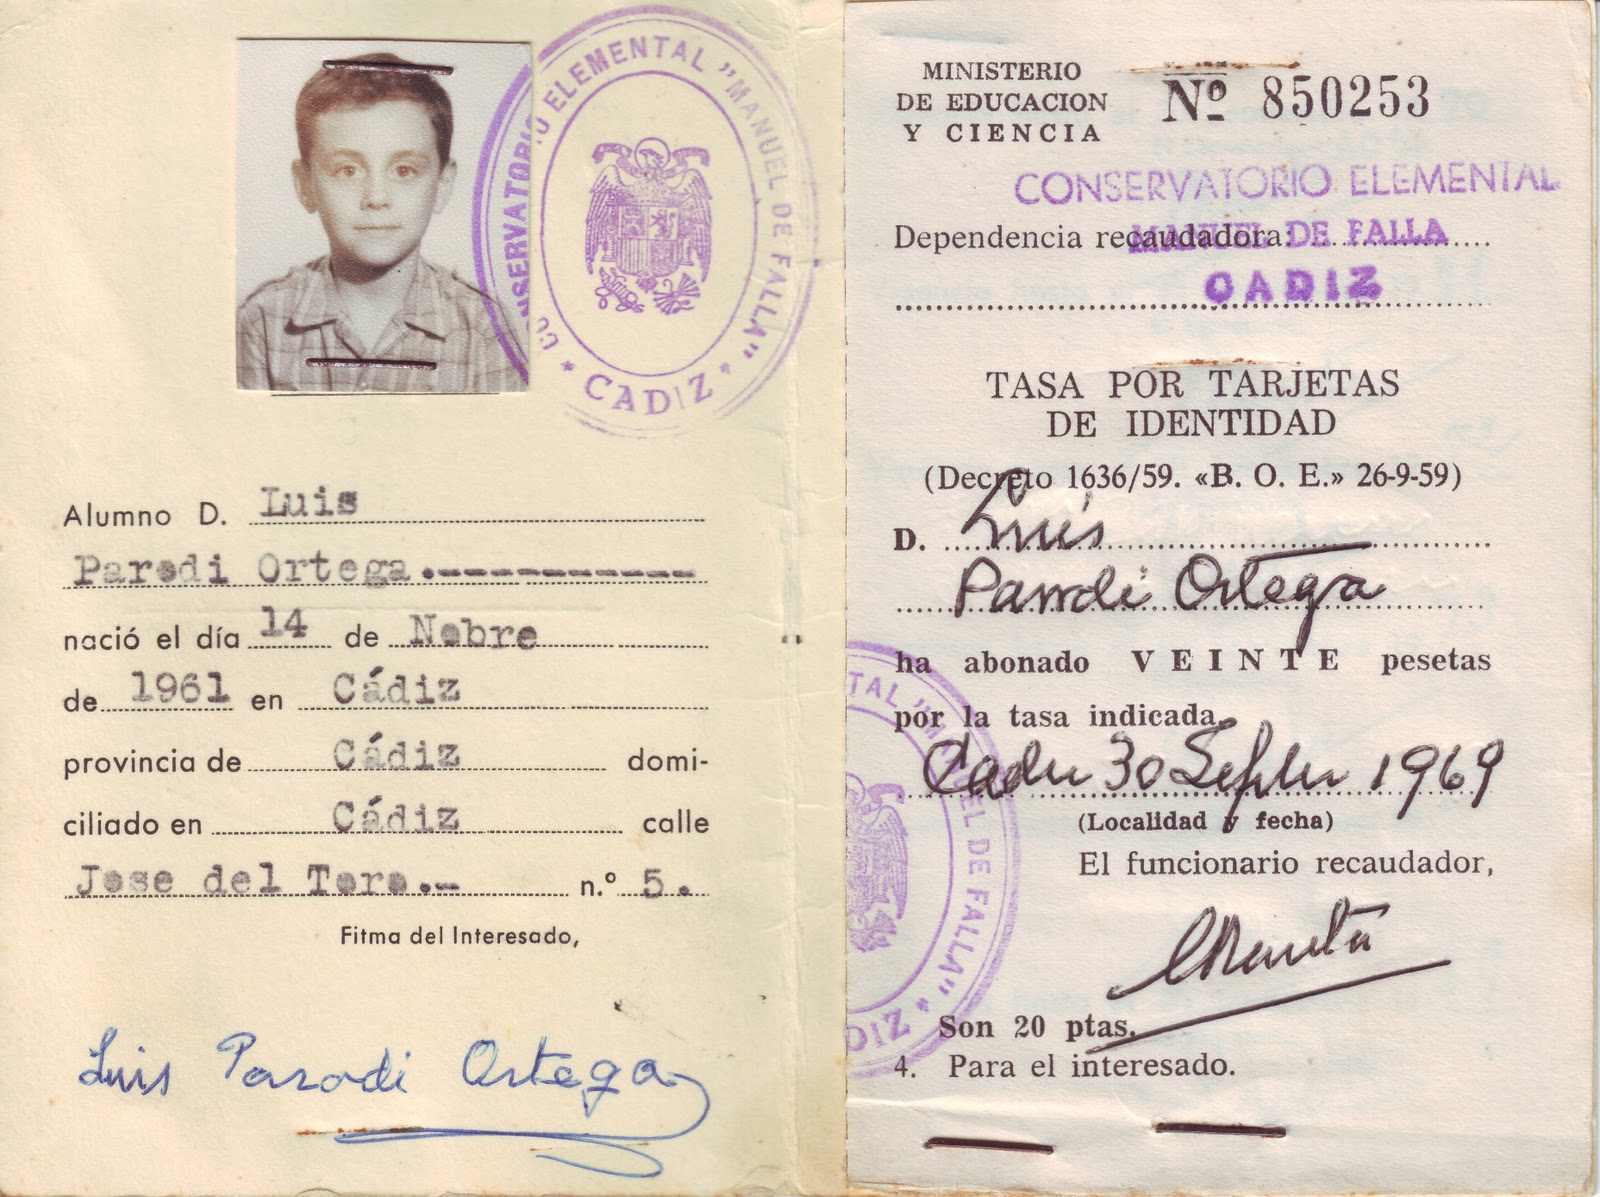 CONSERVATORIO ELEMENTAL "MANUEL DE FALLA"
* CADIZ *
Alumno D. Luis
Parodi Ortega.-----------
nació el día 14 de Nobre
de 1961 en Cádiz
provincia de Cádiz domi-
ciliado en Cádiz calle
Jose del Toro.- n.º 5.
Fitma del Interesado,
Luis Parodi Ortega
MINISTERIO
DE EDUCACION
Y CIENCIA
Nº 850253
CONSERVATORIO ELEMENTAL
Dependencia recaudadora: MANUEL DE FALLA
CADIZ
TASA POR TARJETAS
DE IDENTIDAD
(Decreto 1636/59. «B. O. E.» 26-9-59)
D. Luis
Parodi Ortega
ha abonado VEINTE pesetas
por la tasa indicada.
Cadiz 30 Septbre 1969
(Localidad y fecha)
El funcionario recaudador,
Son 20 ptas.
4. Para el interesado.
NTAL "MANUEL DE FALLA" *
DIZ